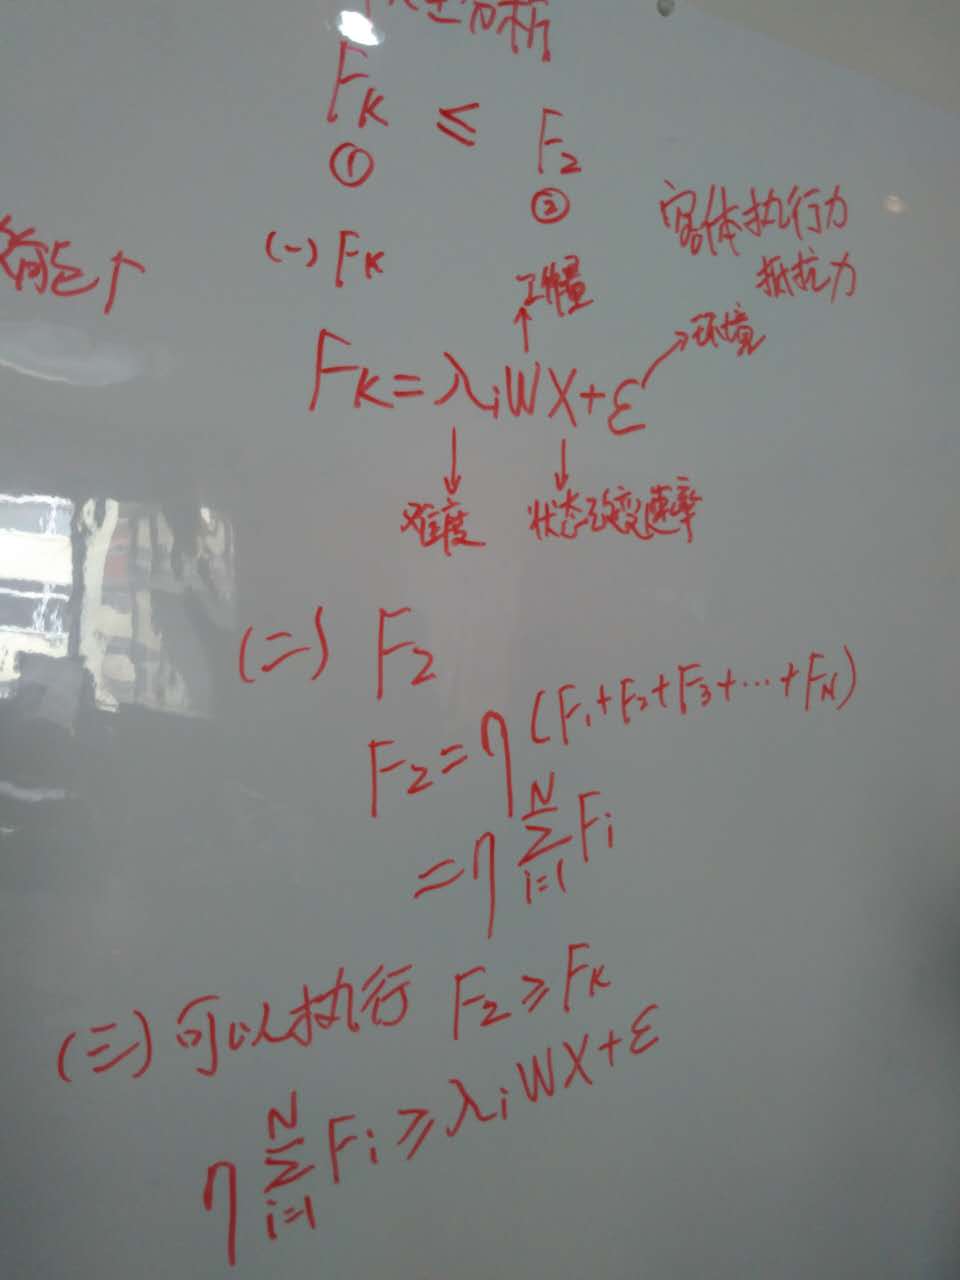 分析
F_K ≤ F_2
① ②
客体执行力
抵抗力
能↑
(一) F_K
工作量
环境
F_K = λ_i W X + ε
难度 状态改变速率
(二) F_2
F_2 = η (F_1 + F_2 + F_3 + ··· + F_N)
= η ∑_{i=1}^{N} F_i
(三) 可以执行 F_2 ≥ F_K
η ∑_{i=1}^{N} F_i ≥ λ_i W X + ε